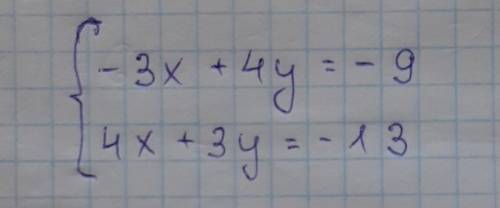 -3x + 4y = - 9
4x + 3y = - 13